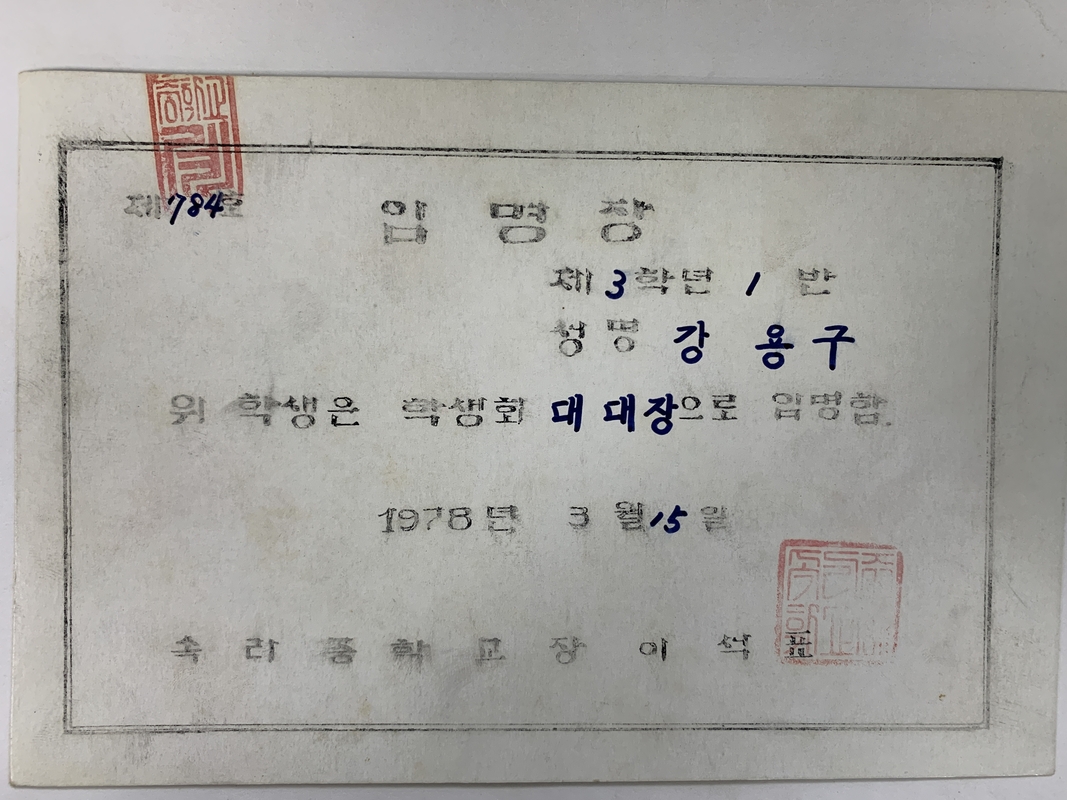 제784호
임 명 장
제 3 학년 1 반
성 명 강 용 구
위 학생은 학생회 대 대장으로 임명함.
1978년 3 월 15 일
속 리 중 학 교 장 이 석 표